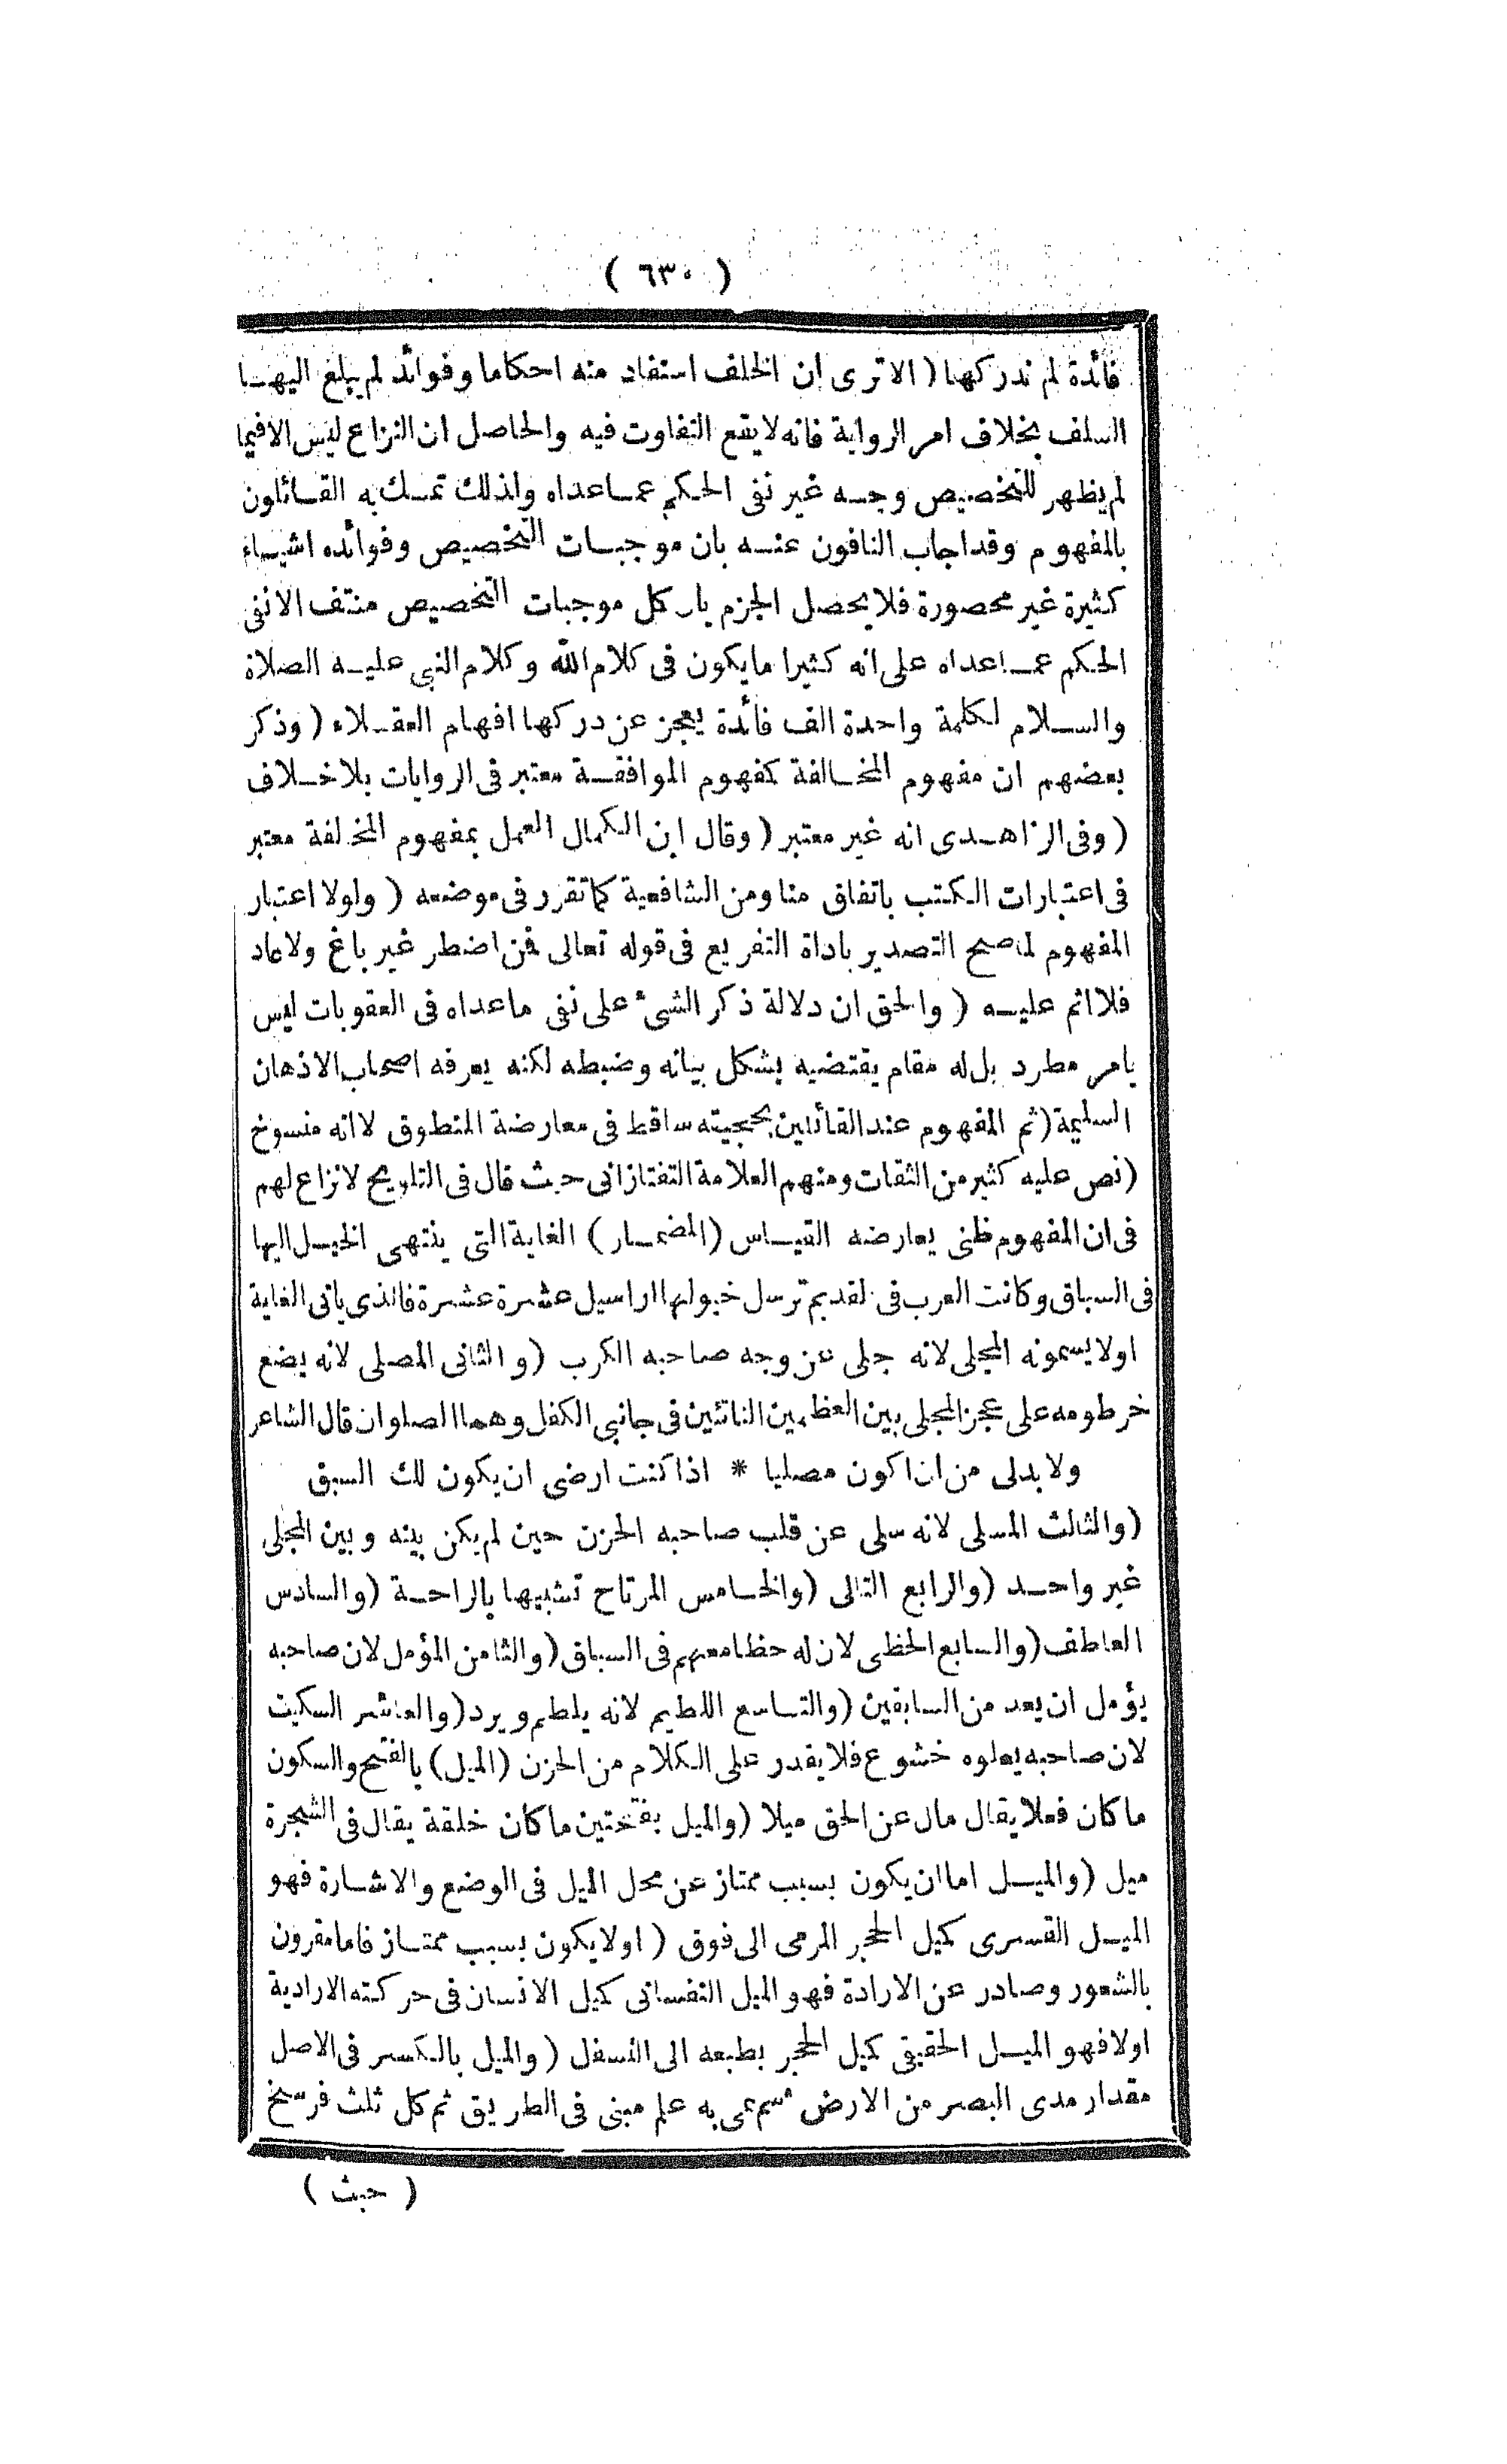 ( ٦٣٠ )
فائدة لم ندركها ( الا ترى ان الخلف استفاد منه احكاما وفوائد لم يبلغ اليها
السلف بخلاف امر الرواية فانه لا يقع التفاوت فيه والحاصل ان النزاع ليس الا فيما
لم يظهر للتخصيص وجه غير نفى الحكم عما عداه ولذلك تمسك به القائلون
بالمفهوم وقد اجاب النافون عنه بان موجبات التخصيص وفوائده اشياء
كثيرة غير محصورة فلا يحصل الجزم بان كل موجبات التخصيص منتف الا نفى
الحكم عما عداه على انه كثيرا ما يكون فى كلام الله وكلام النبى عليه الصلاة
والسلام لكلمة واحدة الف فائدة يعجز عن دركها افهام العقلاء ( وذكر
بعضهم ان مفهوم المخالفة كمفهوم الموافقة معتبر فى الروايات بلا خلاف
( وفى الزاهدى انه غير معتبر ( وقال ابن الكمال العمل بمفهوم المخالفة معتبر
فى اعتبارات الكتب باتفاق منا ومن الشافعية كما تقرر فى موضعه ( ولولا اعتبار
المفهوم لما صح التصدير باداة التفريع فى قوله تعالى فمن اضطر غير باغ ولا عاد
فلا اثم عليه ( والحق ان دلالة ذكر الشئ على نفى ما عداه فى العقوبات ليس
بامر مطرد بل له مقام يقتضيه يشكل بيانه وضبطه لكنه يعرفه اصحاب الاذهان
السليمة ( ثم المفهوم عند القائلين بحجيته ساقط فى معارضة المنطوق لا انه منسوخ
( نص عليه كثير من الثقات ومنهم العلامة التفتازانى حيث قال فى التلويح لا نزاع لهم
فى ان المفهوم ظنى يعارضه القياس ( المضمار ) الغاية التى ينتهى الخيل اليها
فى السباق وكانت العرب فى القديم ترسل خيولها اراسيل عشرة عشرة فالذى ياتى الغاية
اولا يسمونه المجلى لانه جلى عن وجه صاحبه الكرب ( والثانى المصلى لانه يضع
خرطومه على عجز المجلى بين العظمين الناتئين فى جانبى الكفل وهما الصلوان قال الشاعر
ولا بد لى من ان اكون مصليا * اذا كنت ارضى ان يكون لك السبق
( والثالث المسلى لانه سلى عن قلب صاحبه الحزن حين لم يكن بينه وبين المجلى
غير واحد ( والرابع التالى ( والخامس المرتاح تشبيها بالراحة ( والسادس
العاطف ( والسابع الحظى لان له حظا معهم فى السباق ( والثامن المؤمل لان صاحبه
يؤمل ان يعد من السابقين ( والتاسع اللطيم لانه يلطم ويرد ( والعاشر السكيت
لان صاحبه يعلوه خشوع فلا يقدر على الكلام من الحزن ( الميل ) بالفتح والسكون
ما كان فعلا يقال مال عن الحق ميلا ( والميل بفتحتين ما كان خلقة يقال فى الشجرة
ميل ( والميل اما ان يكون بسبب ممتاز عن محل الميل فى الوضع والاشارة فهو
الميل القسرى كميل الحجر المرمى الى فوق ( اولا يكون بسبب ممتاز فاما مقرون
بالشعور وصادر عن الارادة فهو الميل النفسانى كميل الانسان فى حركته الارادية
اولا فهو الميل الحقيقى كميل الحجر بطبعه الى السفل ( والميل بالكسر فى الاصل
مقدار مدى البصر من الارض ثم سمى به علم مبنى فى الطريق ثم كل ثلث فرسخ
( حيث )